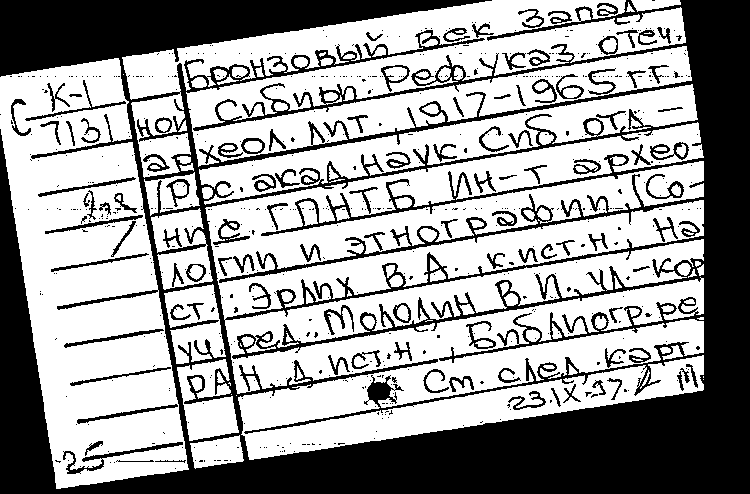 Бронзовый век Запад
С К-1
7131
ной Сибири: Реф. указ. отеч.
археол. лит., 1917-1965 гг.
/Рос. акад. наук. Сиб. отд-
ние. ГПНТБ, Ин-т архео-
логии и этнографии; (Со-
ст.: Эрлих В.А., к.ист.н.; На-
уч. ред.: Молодин В.И., чл.-кор
РАН, д.ист.н.; Библиогр. ре
См. след. карт.
23.IX.97.
25